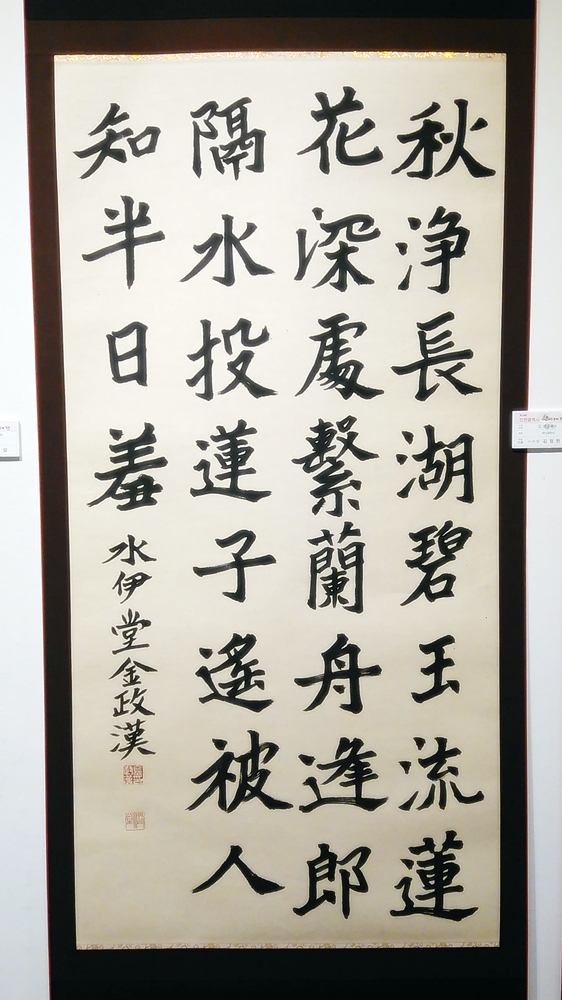 秋浄長湖碧玉流蓮
花深處繫蘭舟逢郎
隔水投蓮子遙被人
知半日羞
水伊堂金政漢